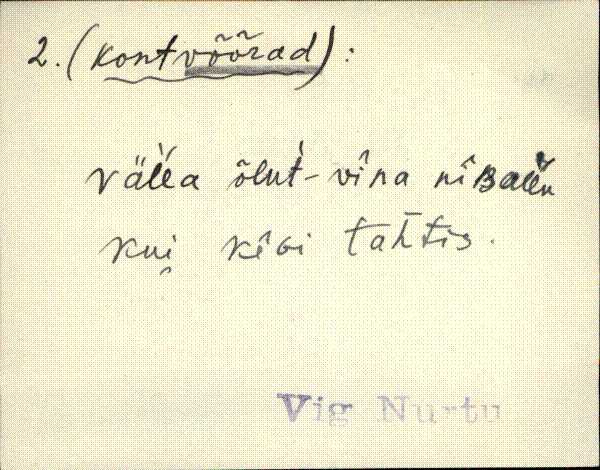 2. (kontvõõrad) :
välla õlut-vîna nî
kui kêGi tahtis.
Vig Nurtu